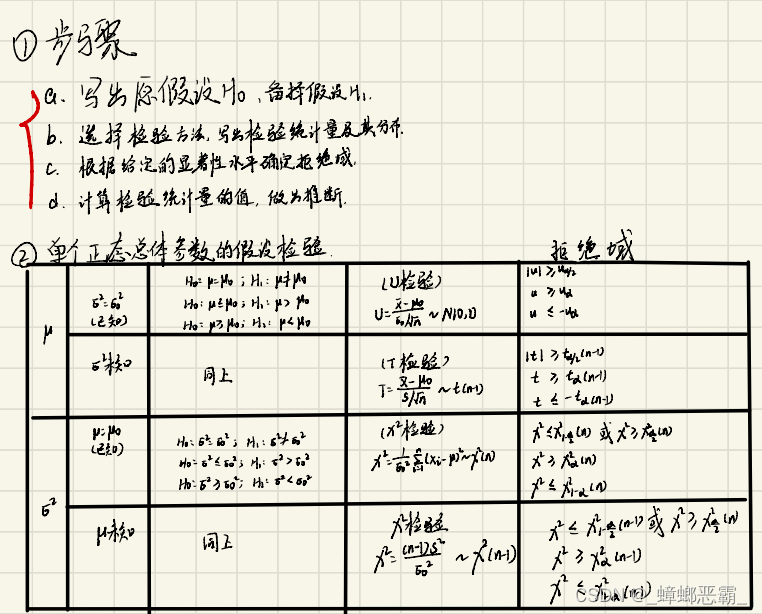 ① 步骤
a. 写出原假设H₀、备择假设H₁.
b. 选择检验方法, 写出检验统计量及其分布.
c. 根据给定的显著性水平确定拒绝域.
d. 计算检验统计量的值, 做出推断.
② 单个正态总体参数的假设检验.
拒绝域
μ
σ²=σ₀²
(已知)
H₀: μ=μ₀ ; H₁: μ≠μ₀
H₀: μ≤μ₀ ; H₁: μ>μ₀
H₀: μ≥μ₀ ; H₁: μ<μ₀
(U检验)
U=(x̄-μ₀)/(σ₀/√n) ~ N(0,1)
|u| ≥ u_{α/2}
u ≥ u_α
u ≤ -u_α
σ²未知
同上
(T检验)
T=(x̄-μ₀)/(S/√n) ~ t(n-1)
|t| ≥ t_{α/2}(n-1)
t ≥ t_α(n-1)
t ≤ -t_α(n-1)
σ²
μ=μ₀
(已知)
H₀: σ²=σ₀² ; H₁: σ²≠σ₀²
H₀: σ²≤σ₀² ; H₁: σ²>σ₀²
H₀: σ²≥σ₀² ; H₁: σ²<σ₀²
(χ²检验)
χ²=1/σ₀² Σ_{i=1}^{n}(xᵢ-μ)² ~ χ²(n)
χ² ≤ χ²_{1-α/2}(n) 或 χ² ≥ χ²_{α/2}(n)
χ² ≥ χ²_α(n)
χ² ≤ χ²_{1-α}(n)
μ未知
同上
χ²检验
χ²=(n-1)S²/σ₀² ~ χ²(n-1)
χ² ≤ χ²_{1-α/2}(n-1) 或 χ² ≥ χ²_{α/2}(n)
χ² ≥ χ²_α(n-1)
χ² ≤ χ²_{1-α}(n-1)
CSDN @_蟑螂恶霸_